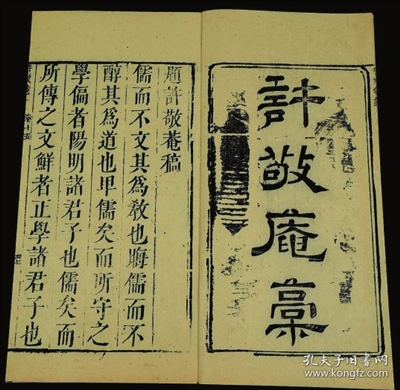 許敬庵稾
題許敬菴稿
儒而不文其為敎也晦儒而不
醇其為道也卑儒矣而所守之
學偏者陽明諸君子也儒矣而
所傳之文鮮者正學諸君子也
孔夫子旧书网
www.kongfz.com